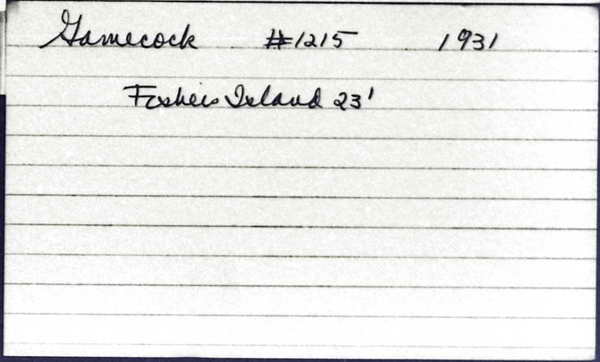 Gamecock #1215 1931
Fishers Island 23'